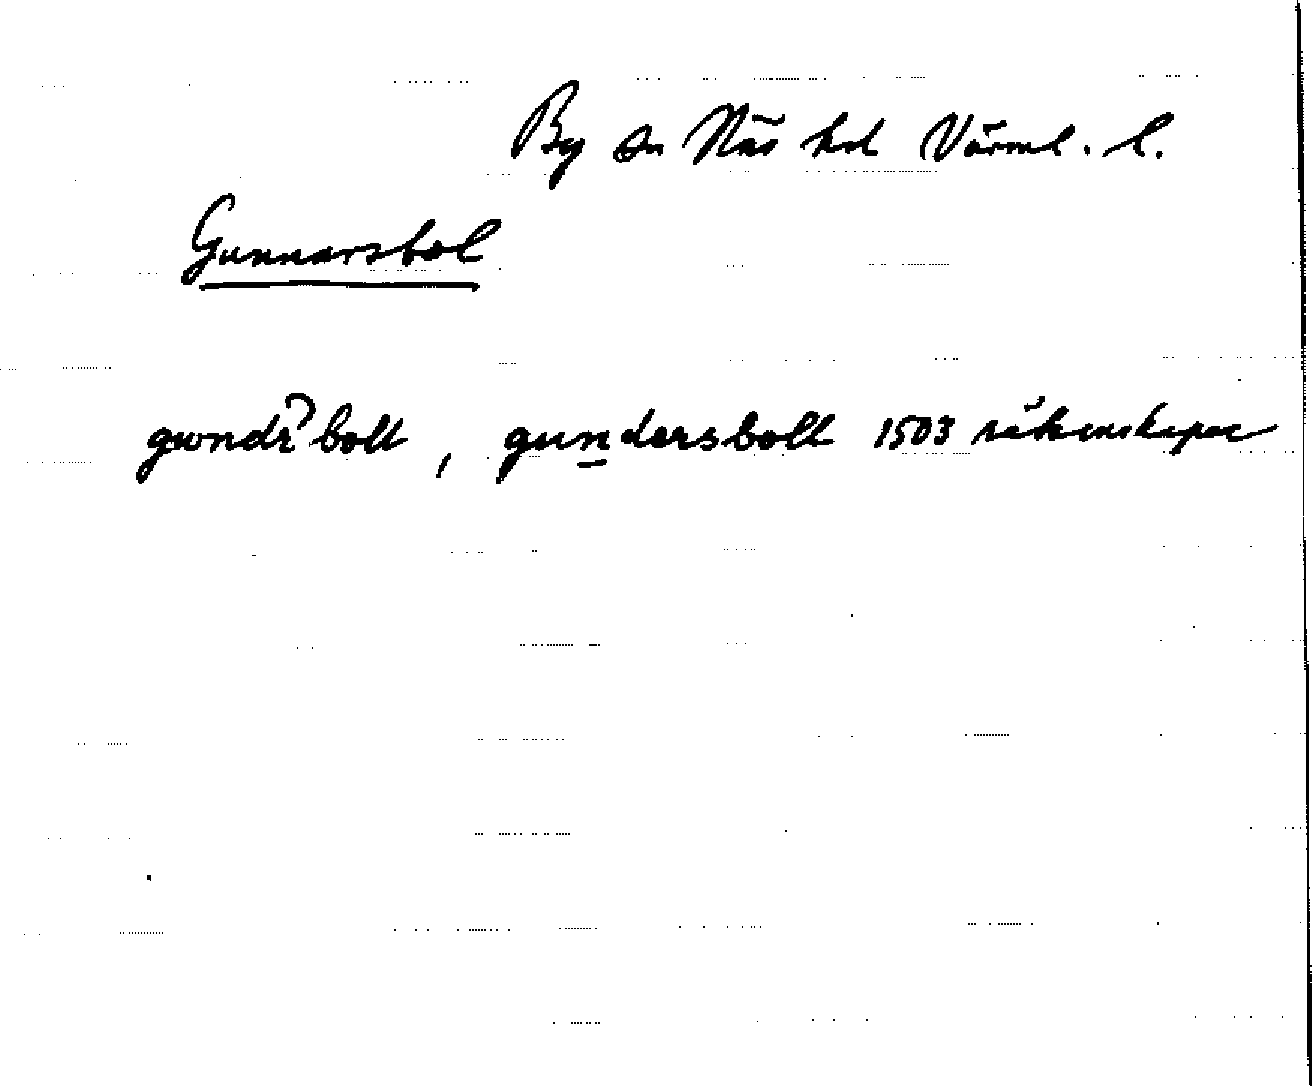 By sn Näs hd Värml. l.
Gunnarsbol
gwndr boll , gundersboll 1503 räkenskaper